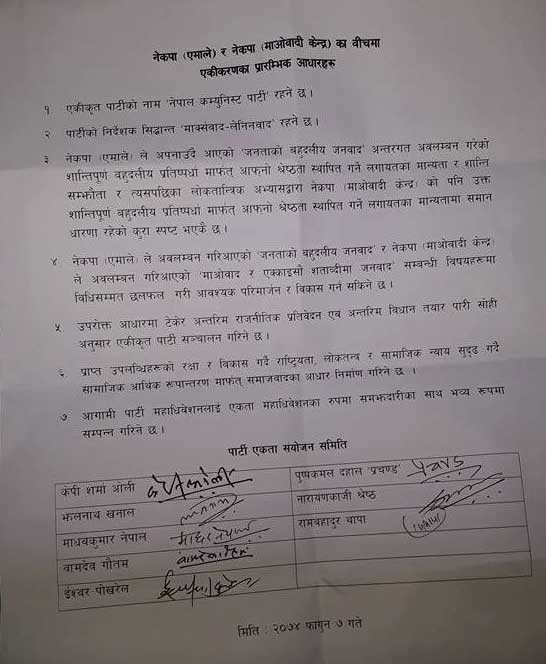 नेकपा (एमाले) र नेकपा (माओवादी केन्द्र) का वीचमा
एकीकरणका प्रारम्भिक आधारहरू
१ एकीकृत पार्टीको नाम 'नेपाल कम्युनिस्ट पार्टी' रहने छ ।
२ पार्टीको निर्देशक सिद्धान्त 'मार्क्सवाद-लेनिनवाद' रहने छ ।
३ नेकपा (एमाले) ले अपनाउदै आएको 'जनताको बहुदलीय जनवाद' अन्तरगत अवलम्बन गरेको
शान्तिपूर्ण बहुदलीय प्रतिष्पर्धा मार्फत् आफ्नो श्रेष्ठता स्थापित गर्ने लगायतका मान्यता र शान्ति
सम्झौता र त्यसपछिका लोकतान्त्रिक अभ्यासद्वारा नेकपा (माओवादी केन्द्र) को पनि उक्त
शान्तिपूर्ण बहुदलीय प्रतिष्पर्धा मार्फत् आफ्नो श्रेष्ठता स्थापित गर्ने लगायतका मान्यतामा समान
धारणा रहेको कुरा स्पष्ट भएकै छ ।
४ नेकपा (एमाले) ले अवलम्बन गरिआएको 'जनताको बहुदलीय जनवाद' र नेकपा (माओवादी केन्द्र)
ले अवलम्बन गरिआएको 'माओवाद र एक्काइसौ शताब्दीमा जनवाद' सम्बन्धी विषयहरूमा
विधिसम्मत छलफल गरी आवश्यक परिमार्जन र विकास गर्न सकिने छ ।
५ उपरोक्त आधारमा टेकेर अन्तरिम राजनीतिक प्रतिवेदन एवं अन्तरिम विधान तयार पारी सोही
अनुसार एकीकृत पार्टी सञ्चालन गरिने छ ।
६ प्राप्त उपलब्धिहरूको रक्षा र विकास गर्दै राष्ट्रियता, लोकतन्त्र र सामाजिक न्याय सुदृढ गर्दै
सामाजिक आर्थिक रूपान्तरण मार्फत् समाजवादका आधार निर्माण गरिने छ ।
७ आगामी पार्टी महाधिवेशनलाई एकता महाधिवेशनका रुपमा समझदारीका साथ भव्य रूपमा
सम्पन्न गरिने छ ।
पार्टी एकता संयोजन समिति
केपी शर्मा ओली
झलनाथ खनाल
माधवकुमार नेपाल माधव नेपाल
वामदेव गौतम
ईश्वर पोखरेल
पुष्पकमल दहाल 'प्रचण्ड'
नारायणकाजी श्रेष्ठ
रामबहादुर थापा
मिति : २०७४ फागुन ७ गते